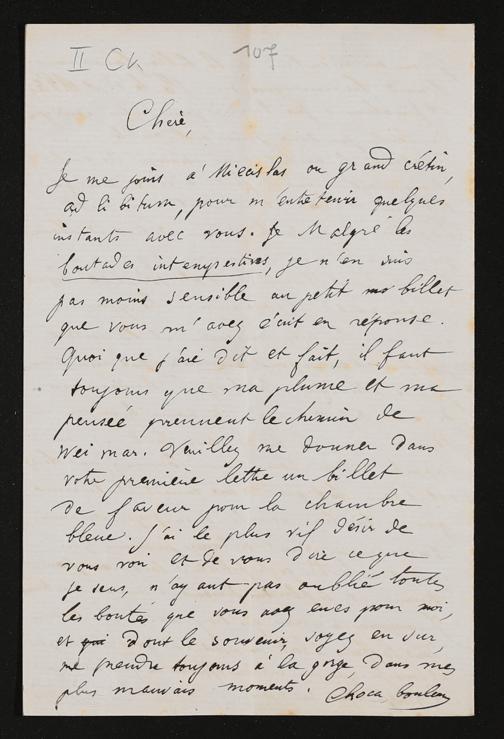 II Ck 107
Cheré,
Je me joins á Miecislas ou grand crétin,
ad libitum, pour m'entretenir quelques
instants avec vous. Je Malgré les
boutades intempestives, je n'en suis
pas moins sensible au petit billet
que vous m'avez écrit en réponse.
Quoi que j'aie dit et fait, il faut
toujours que ma plume et ma
pensée prennent le chemin de
Weimar. Veuillez me donner dans
votre première lettre un billet
de faveur pour la chambre
bleue. J'ai le plus vif désir de
vous voir et de vous dire ce que
je sens, n'ayant pas oublié toutes
les bontés que vous avez eues pour moi,
et qui dont le souvenir, soyez en sur,
me prendre toujours à la gorge, dans mes
plus mauvais moments.